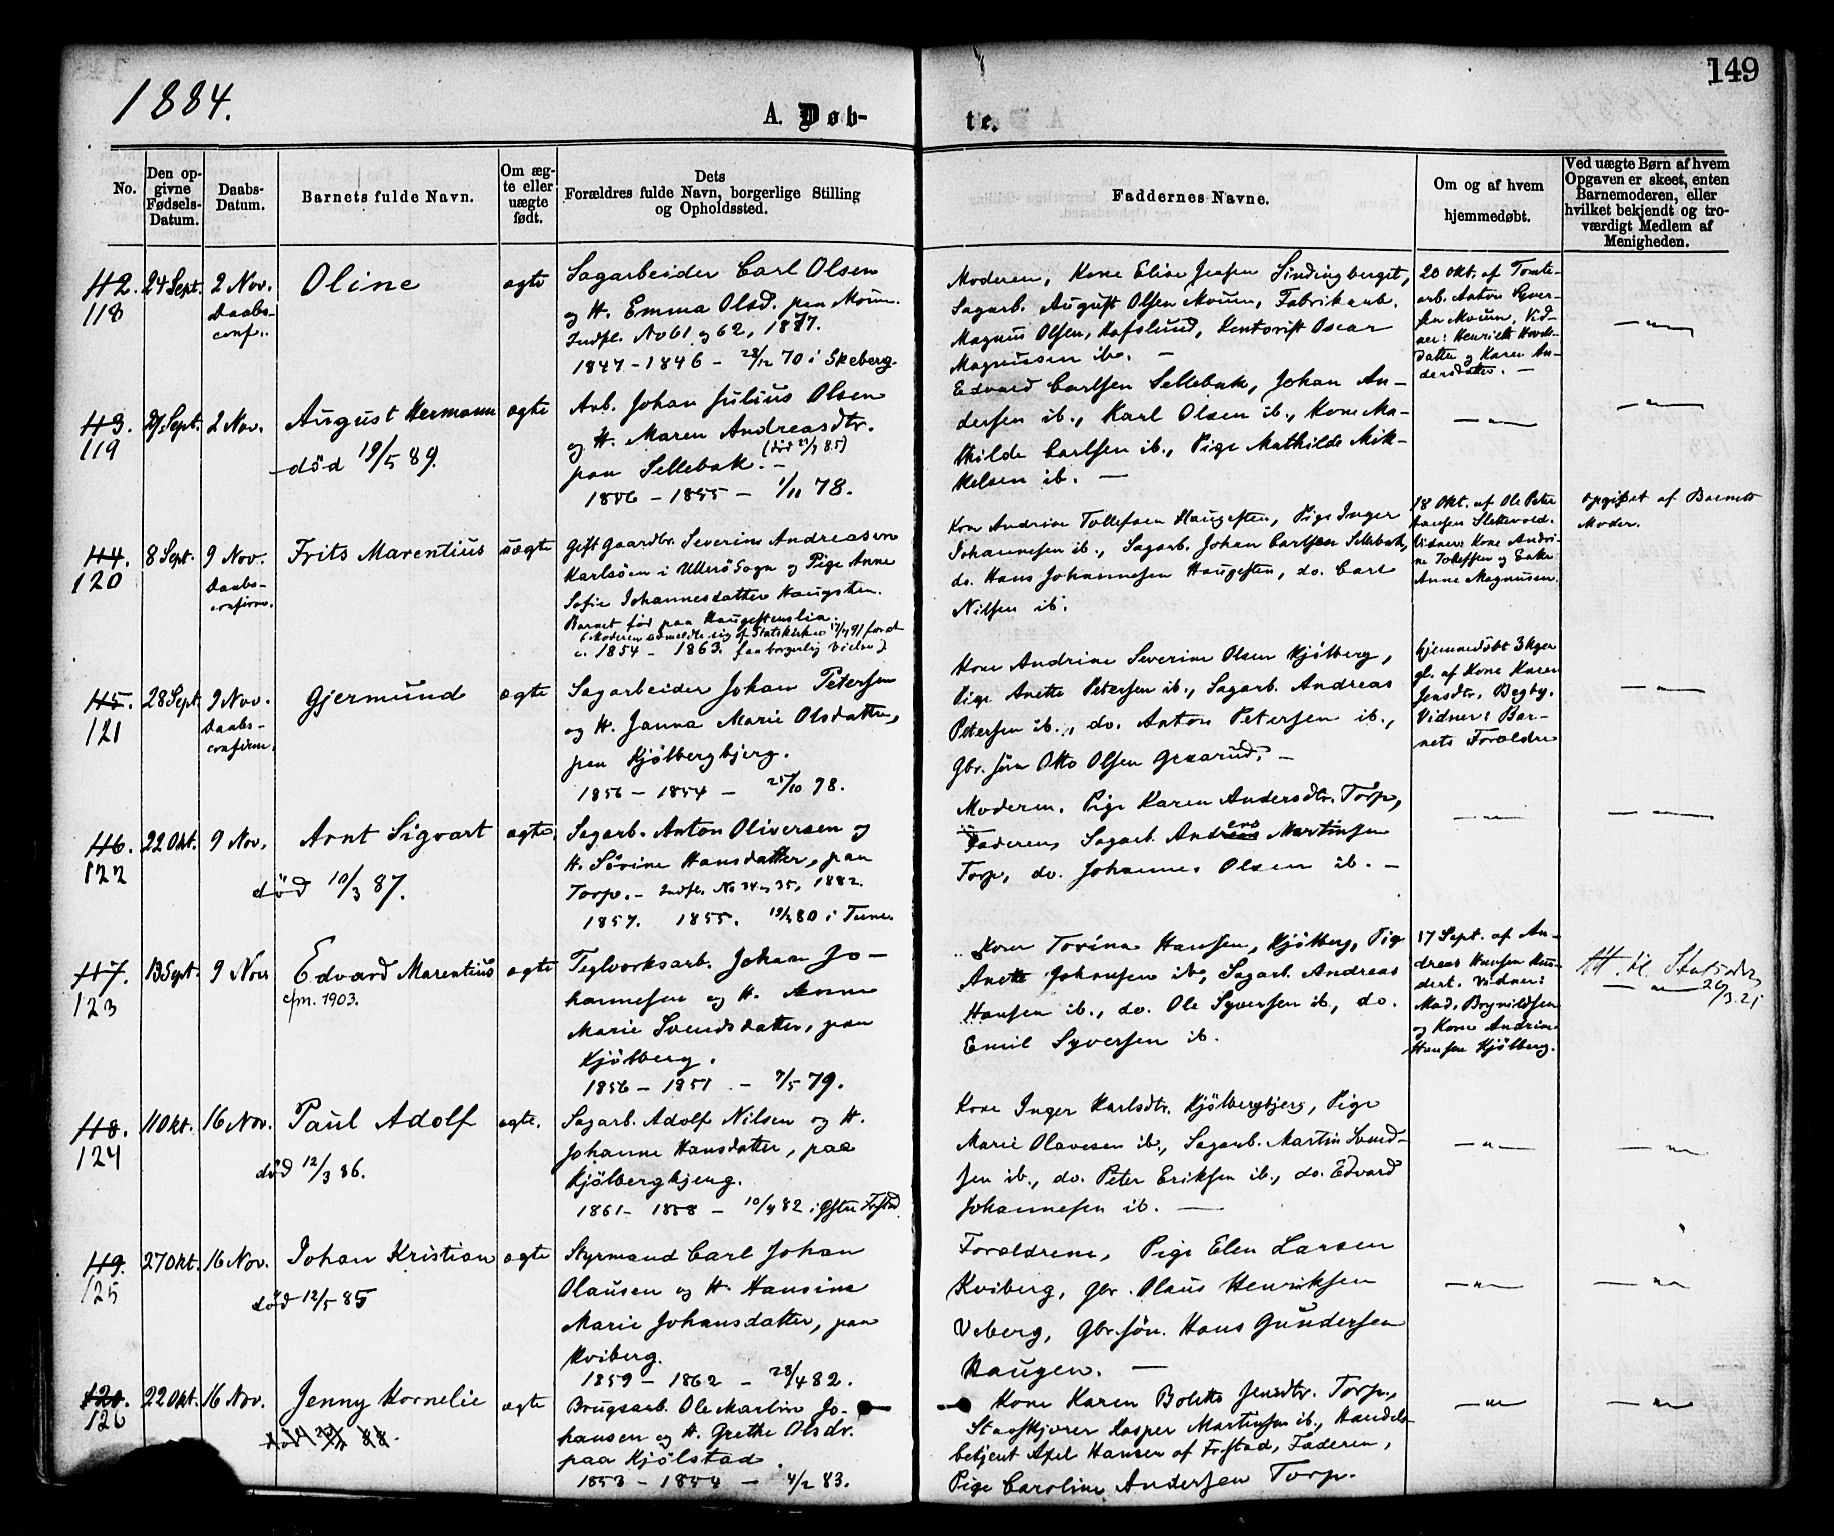 149
1884.
A. Døb-
te.
No.
Den op-
givne
Fødsels-
Datum.
Daabs-
Datum.
Barnets fulde Navn.
Om æg-
te eller
uægte
født.
Dets
Forældres fulde Navn, borgerlige Stilling
og Opholdssted.
Faddernes Navne.
Om og af hvem
hjemmedøbt.
Ved uægte Børn af hvem
Opgaven er skeet, enten
Barnemoderen, eller
hvilket bekjendt og tro-
værdigt Medlem af
Menigheden.
112.
118
24 Sept.
2 Nov.
Daabs-
conf.
Oline
ægte
Sagarbeider Carl Olsen
og H. Emma Olsd. paa Moum.
Indfl. No 61 og 62, 1877.
1847 - 1846 - 28/12 70 i Skeberg.
Moderen, Kone Elise Jensen Sindingberget,
Sagarb. August Olsen Moum, Fabrikarb.
Magnus Olsen, Hafslund, Kontorist Oscar
Magnussen ib. -
20 Okt. af Tomte-
arb. Anton Syver-
sen Moum, Vid-
ner: Henriette Hovels-
datter og Karen An-
dersdatter. -
- " -
113.
119
27 Sept.
2 Nov.
August Hermann
død 19/5 89.
ægte
Arb. Johan Julius Olsen
og H. Maren Andreasdtr.
(død 21/7 85)
paa Sellebak. -
1856 - 1855 - 1/11 78.
Edvard Carlsen Sellebak, Johan An-
dersen ib., Karl Olsen ib., Kone Ma-
thilde Carlsen ib., Pige Mathilde Mik-
kelsen ib. -
- " -
- " -
114.
120
8 Sept.
9 Nov.
Daabs-
confirm.
Frits Marentius
uægte
Gift Gaardbr. Severin Andreasen
Karlsøen i Ullerø Sogn og Pige Anne
Sofie Johannesdatter Haugsten.
Barnet født paa Haugestenslia.
(Moderen udmeldte sig af Statskirken 17/7 91 for at
c. 1854 - 1863. faa borgerlig Vielse)
Kone Andrine Tollefsen Haugesten, Pige Inger
Johannesen ib., Sagarb. Johan Carlsen Sellebak,
do. Hans Johannesen Haugesten, do. Carl
Nilsen ib.
18 Okt. af Ole Peter
Hansen Slettevold.
Vidner: Kone Andri-
ne Tollefsen og Enke
Anne Magnusen.
Opgivet af Barnets
Moder.
115.
121
28 Sept.
9 Nov.
Daabs-
confirm.
Gjermund
ægte
Sagarbeider Johan Petersen
og H. Janna Marie Olsdatter,
paa Kjølbergbjerg.
1856 - 1854 - 25/10 78.
Kone Andrine Severine Olsen Kjølberg,
Pige Anette Petersen ib., Sagarb. Andreas
Petersen ib., do. Anton Petersen ib.,
Gbr. søn Otto Olsen Grearud. -
hjemmedøbt 3 Uger
gl. af Kone Karen
Jensdtr, Begby.
Vidner: Bar-
nets Forældre
- " -
116.
122
22 Okt.
9 Nov.
Arnt Sigvart
død 10/3 87.
ægte
Sagarb. Anton Oliversen og
H. Sørine Hansdatter, paa
Torp. - Indfl. No 34 og 35, 1882.
1857. 1855. 19/3 80 i Tune.
Moderen. Pige Karen Andersdtr. Torp,
Faderen, Sagarb. Anders Martinsen
Torp, do. Johannes Olsen ib. -
- " -
- " -
117.
123
13 Sept.
9 Nov
Edvard Marentius
cfm. 1903.
ægte
Teglværksarb. Johan Jo-
hannesen og H. Anne
Marie Svendsdatter, paa
Kjølberg.
1856 - 1851 - 7/5 79.
Kone Torina Hansen, Kjølberg, Pige
Anette Johansen ib., Sagarb. Andreas
Hansen ib., do. Ole Syversen ib., do.
Emil Syversen ib.
17 Sept. af An-
dreas Hansen
Vidner:
Mad. Brynildsen
og Kone Andrine
Hansen Kjølberg.
- " -
118.
124
11 Okt.
16 Nov.
Paul Adolf
død 12/3 86.
ægte.
Sagarb. Adolf Nilsen og H.
Johanne Hansdatter, paa
Kjølbergbjerg.
1861 - 1858 - 10/4 82 i Østre Frstad.
Kone Inger Karlsdtr. Kjølbergbjerg, Pige
Marie Olavesen ib., Sagarb. Martin Svend-
sen ib., do. Peter Eriksen ib., do. Edvard
Johannesen ib. -
- " -
- " -
119.
125
27 Okt.
16 Nov.
Johan Kristian
død 12/5 85
ægte
Styrmand Carl Johan
Olausen og H. Hansine
Marie Johansdatter, paa
Kviberg.
1859 - 1862 - 28/4 82.
Forældrene, Pige Elen Larsen
Kviberg, Gbr. Olaus Henriksen
Veberg, Gbr.søn. Hans Gundersen
Haugen. -
- " -
- " -
120.
126
22 Okt.
16 Nov.
Jenny Kornelie
ægte
Brugsarb. Ole Martin Jo-
hansen og H. Grethe Olsdr.
paa Kjølstad.
1853 - 1854 - 4/2 83.
Kone Karen Bolette Jensdtr. Torp,
Kasper Martinsen ib., Handels-
betjent Axel Hansen af Frstad, Faderen,
Pige Caroline Andersen Torp.
- " -
- " -